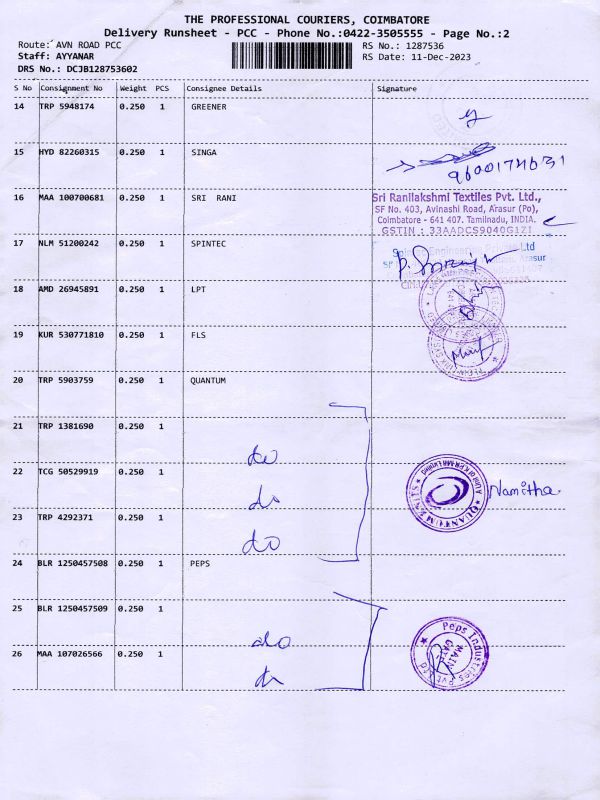 THE PROFESSIONAL COURIERS, COIMBATORE
Delivery Runsheet - PCC - Phone No.:0422-3505555 - Page No.:2
Route: AVN ROAD PCC
RS No.: 1287536
Staff: AYYANAR
RS Date: 11-Dec-2023
DRS No.: DCJB128753602
S No Consignment No Weight PCS Consignee Details Signature
14 TRP 5948174 0.250 1 GREENER
15 HYD 82260315 0.250 1 SINGA
9600174631
16 MAA 100700681 0.250 1 SRI RANI
Sri Ranilakshmi Textiles Pvt. Ltd.,
SF No. 403, Avinashi Road, Arasur (Po),
Coimbatore - 641 407. Tamilnadu, INDIA.
GSTIN : 33AADCS9040G1ZI
17 NLM 51200242 0.250 1 SPINTEC
18 AMD 26945891 0.250 1 LPT
19 KUR 530771810 0.250 1 FLS
20 TRP 5903759 0.250 1 QUANTUM
21 TRP 1381690 0.250 1
do
22 TCG 50529919 0.250 1
do
QUANTUM
Namitha
23 TRP 4292371 0.250 1
do
24 BLR 1250457508 0.250 1 PEPS
25 BLR 1250457509 0.250 1
do
Peps Industries Pvt Ltd
MAIN GATE
26 MAA 107026566 0.250 1
do